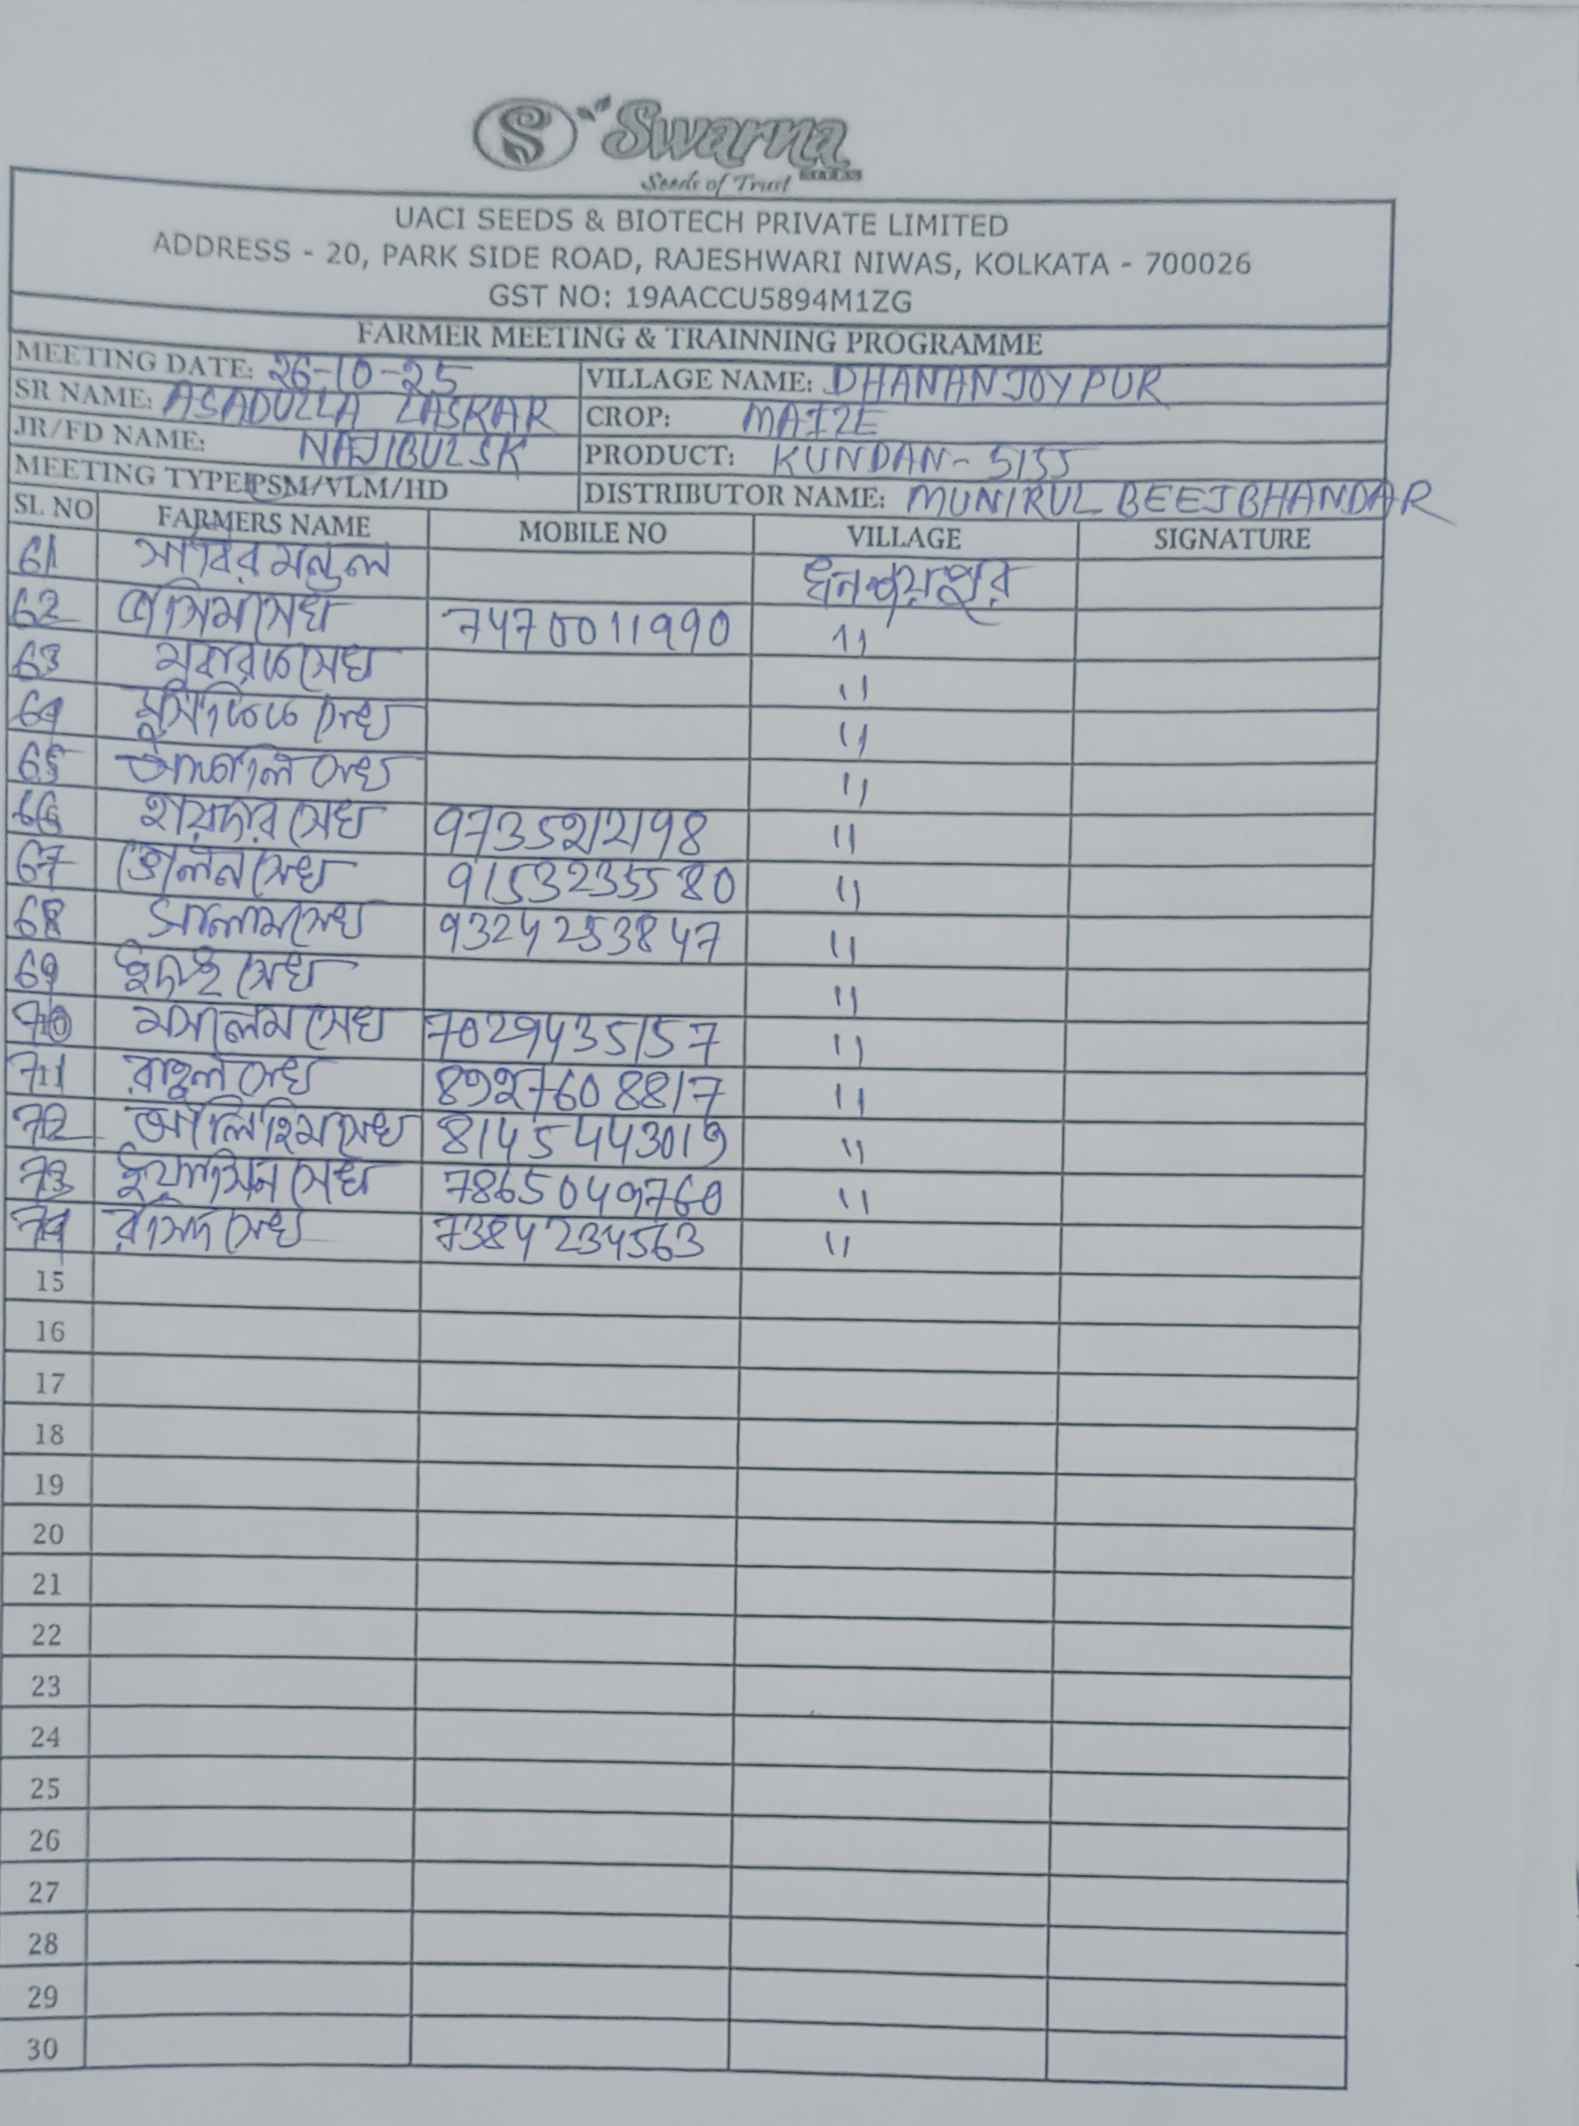 Swarna
SEEDS
Seeds of Trust
UACI SEEDS & BIOTECH PRIVATE LIMITED
ADDRESS - 20, PARK SIDE ROAD, RAJESHWARI NIWAS, KOLKATA - 700026
GST NO: 19AACCU5894M1ZG
FARMER MEETING & TRAINNING PROGRAMME
MEETING DATE: 26-10-25 VILLAGE NAME: DHANANJOYPUR
SR NAME: ASADULLA LASKAR CROP: MAIZE
JR/FD NAME: NAJIBUL SK PRODUCT: KUNDAN-5155
MEETING TYPE: PSM/VLM/HD DISTRIBUTOR NAME: MUNIRUL BEEJ BHANDAR
SL NO FARMERS NAME MOBILE NO VILLAGE SIGNATURE
61 সাবির মন্ডল ধনঞ্জয়পুর
62 সেখ 7470011990 "
63 সেখ "
64 সেখ "
65 সেখ "
66 হায়দার সেখ "
67 সেখ 9153235580 "
68 সালাম সেখ 9324253847 "
69 সেখ "
70 মসালেম সেখ 7029435157 "
71 রাহুল সেখ "
72 সেখ 8145443019 "
73 ইয়াসিন সেখ 7865049760 "
74 রসিদ সেখ 7384234563 "
15
16
17
18
19
20
21
22
23
24
25
26
27
28
29
30